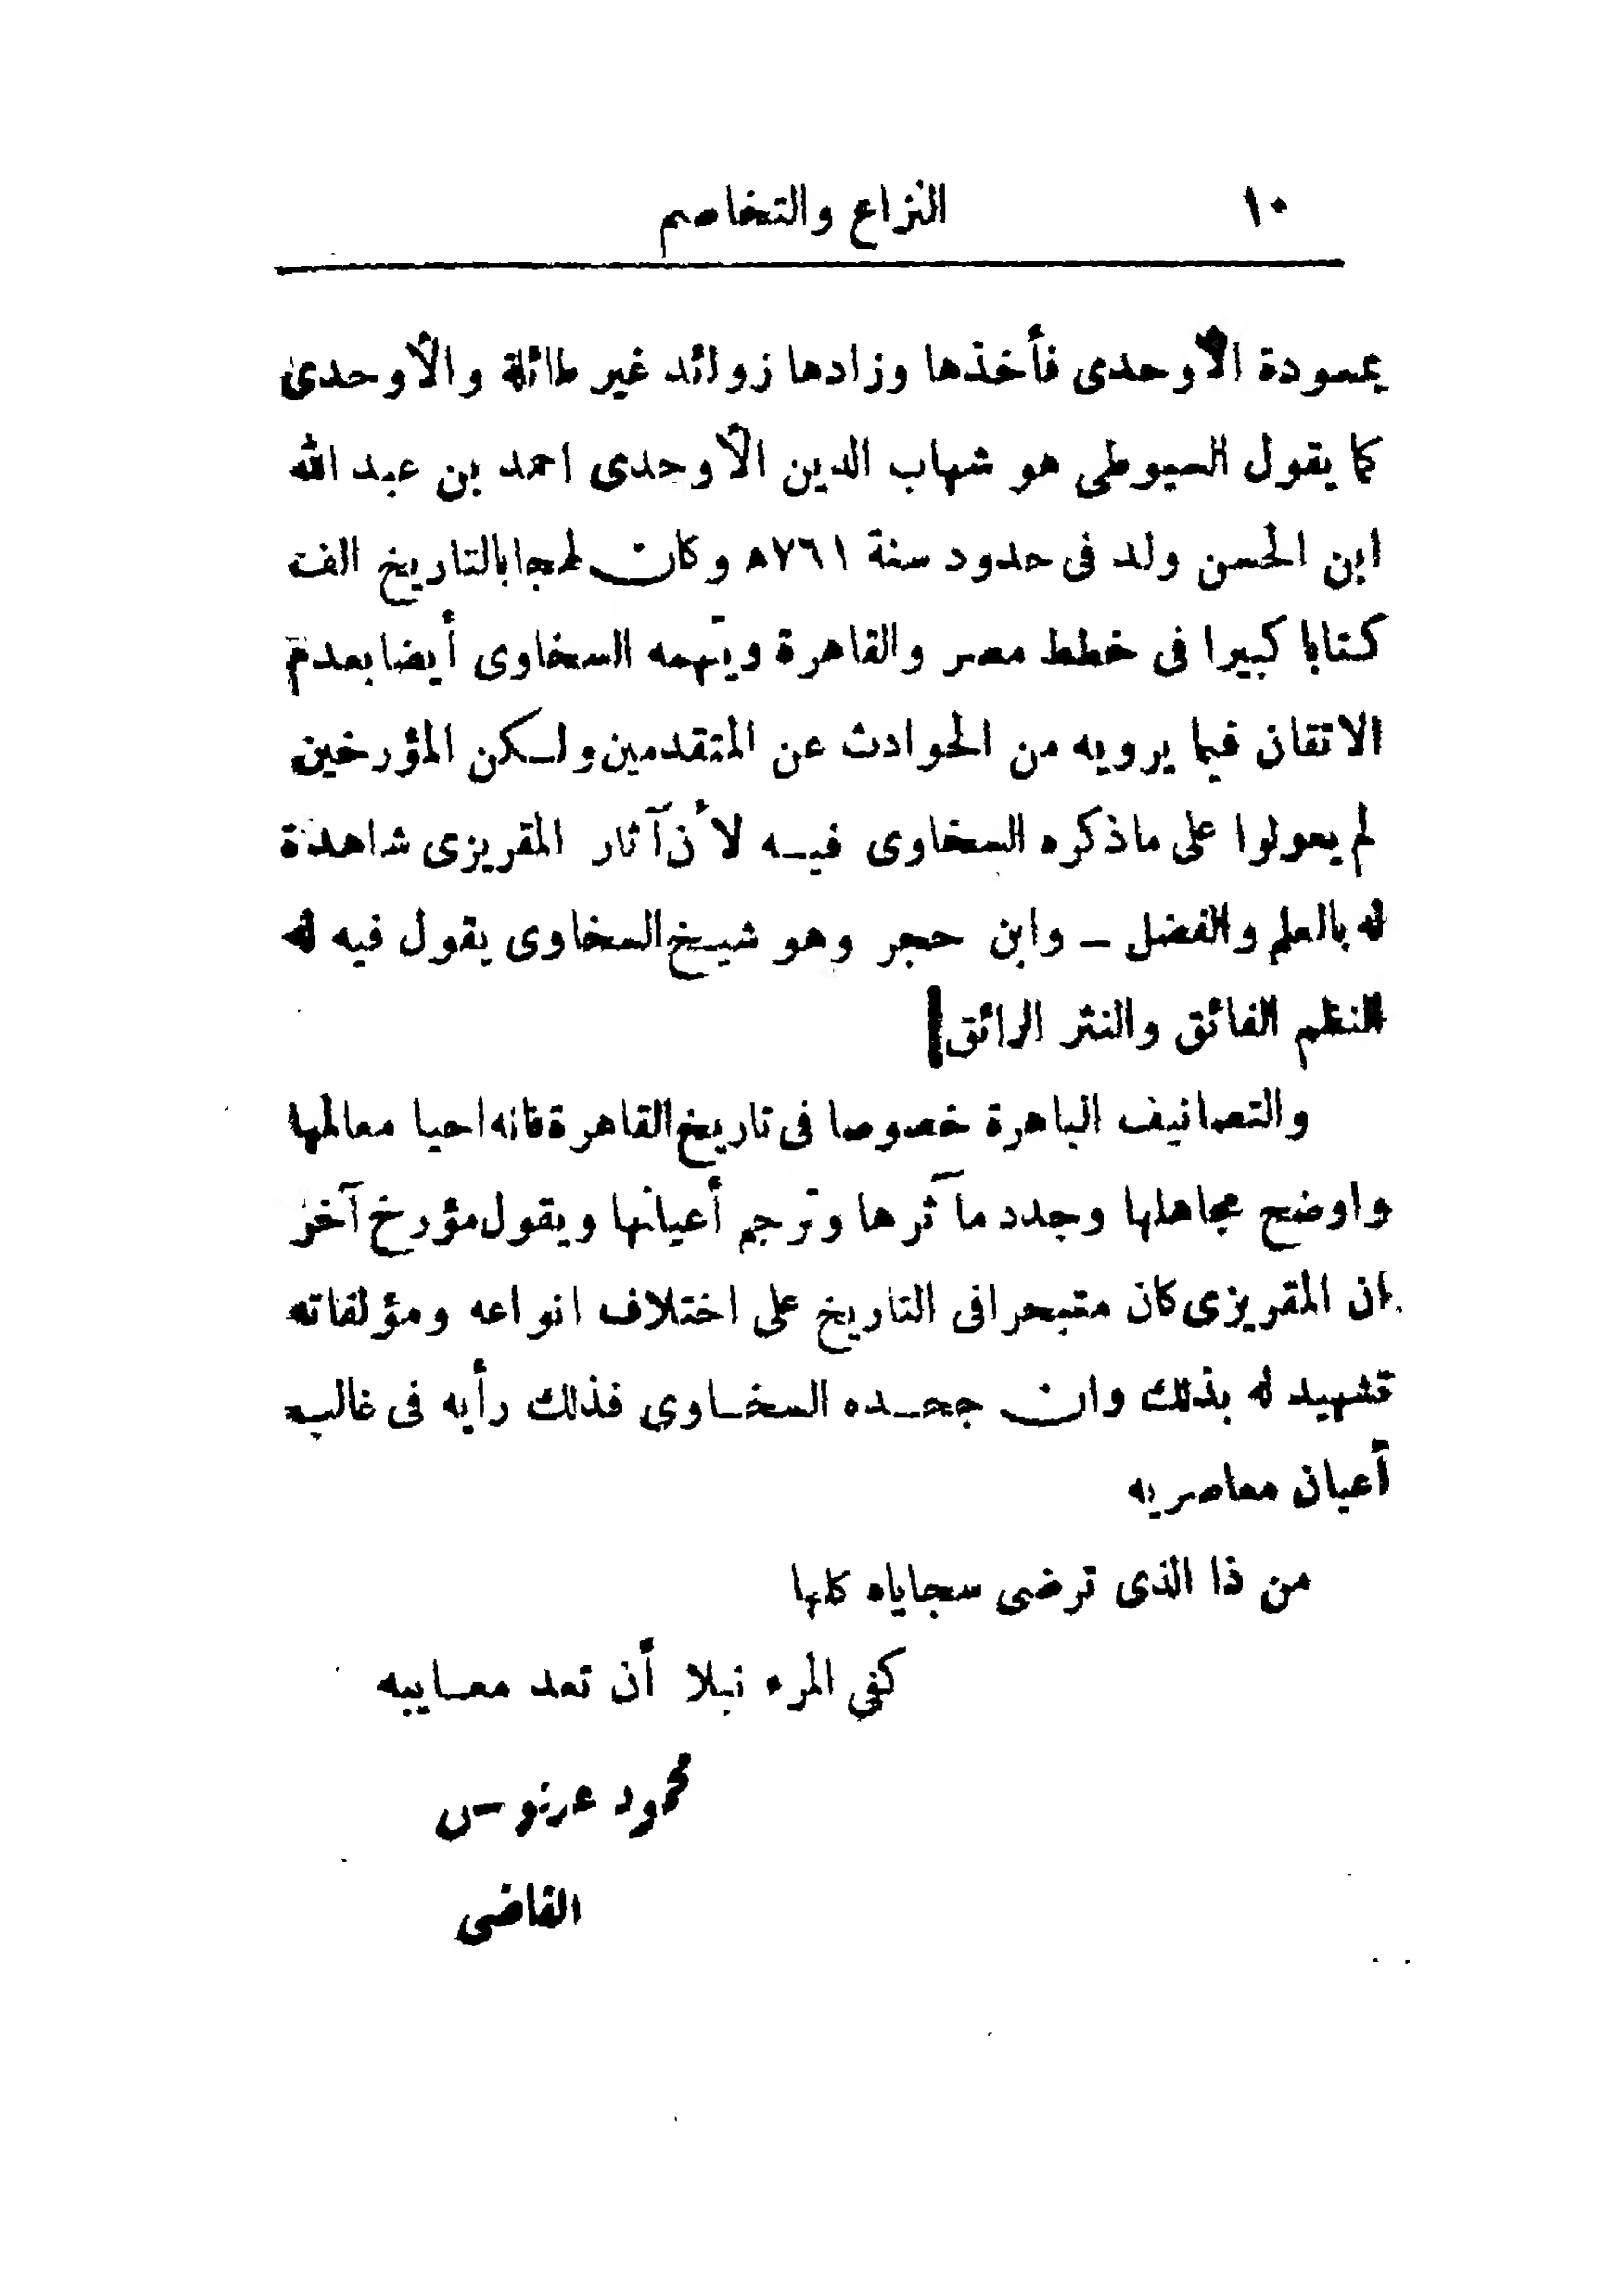 ١٠ النزاع والتخاصم
بمسودة الأوحدى فأخذها وزادها زوائد غير طائلة والأوحدى
كما يقول السيوطى هو شهاب الدين الأوحدى احمد بن عبد الله
ابن الحسن ولد فى حدود سنة ٧٦١ه وكان لهجا بالتاريخ الف
كتابا كبيرا فى خطط مصر والقاهرة ويتهمه السخاوى أيضا بعدم
الاتقان فيما يرويه من الحوادث عن المتقدمين ولكن المؤرخين
لم يعولوا على ماذكره السخاوى فيه لأن آثار المقريزى شاهدة
له بالعلم والفضل – وابن حجر وهو شيخ السخاوى يقول فيه له
النظم الفائق والنثر الرائق
والتصانيف الباهرة خصوصا فى تاريخ القاهرة فانه احيا معالمها
واوضح مجاهلها وجدد مآثرها وترجم أعيانها ويقول مؤرخ آخر
ان المقريزى كان متبحرا فى التاريخ على اختلاف انواعه ومؤلفاته
تشهيد له بذلك وان جحده السخاوى فذلك رأيه فى غالب
أعيان معاصريه
من ذا الذى ترضى سجاياه كلها
كفى المرء نبلا أن تعد معايبه
محمود عرنوس
القاضى